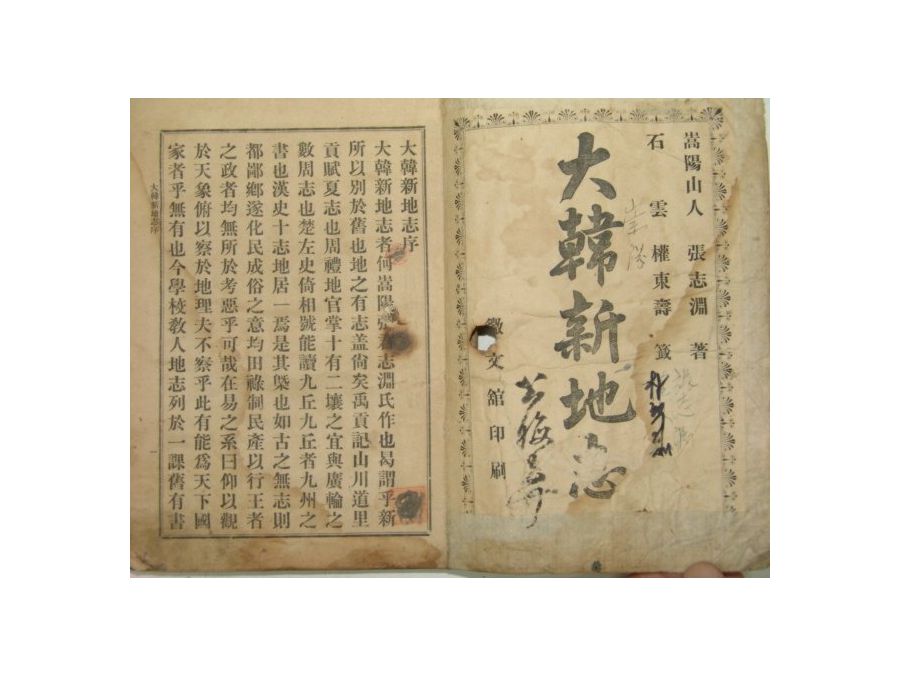 嵩陽山人 張志淵 著
石雲 權東壽 籤
大韓新地志
徽文舘印刷
大韓新地志序
大韓新地志者何嵩陽張君志淵氏作也曷謂乎新
所以別於舊也地之有志盖尙矣禹貢記山川道里
貢賦夏志也周禮地官掌十有二壤之宜與廣輪之
數周志也楚左史倚相號能讀九丘九丘者九州之
書也漢史十志地居一焉是其槩也如古之無志則
都鄙鄕遂化民成俗之意均田祿制民產以行王者
之政者均無所於考惡乎可哉在易之系曰仰以觀
於天象俯以察於地理夫不察乎此有能爲天下國
家者乎無有也今學校敎人地志列於一課舊有書
大韓新地志序